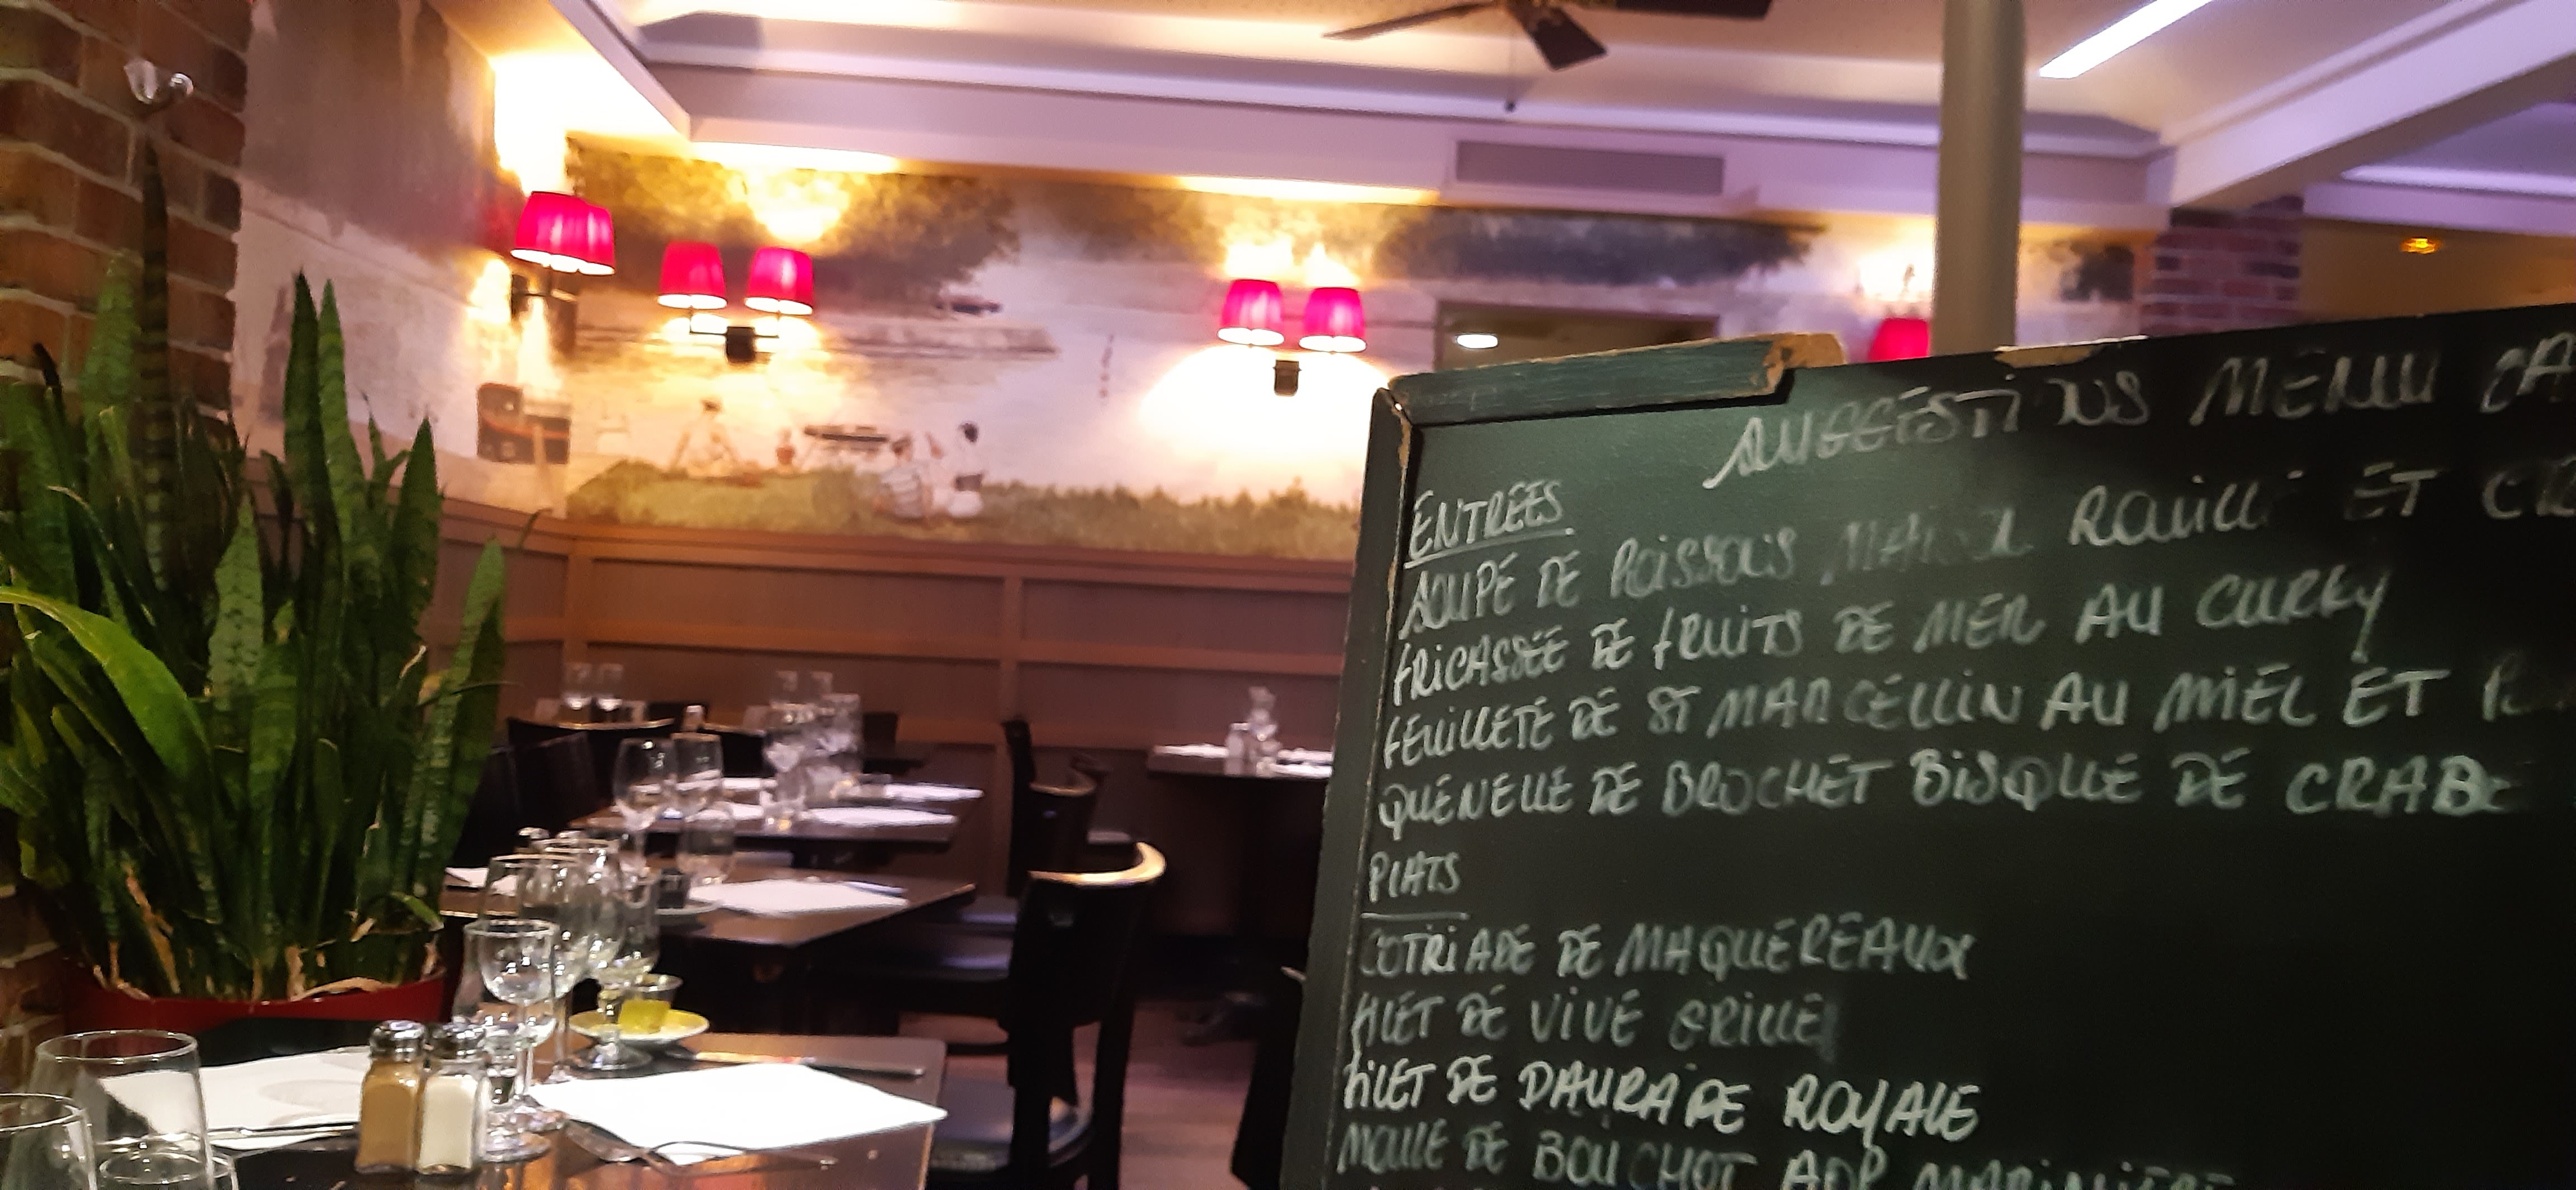 SUGGESTIONS MENU CA
ENTREES
SOUPE DE POISSONS MAISON ROUILLE ET CR
FRICASSÉE DE FRUITS DE MER AU CURRY
FEUILLETÉ DE ST MARCELLIN AU MIEL ET
QUENELLE DE BROCHET BISQUE DE CRABE
PLATS
COTRIADE DE MAQUEREAUX
FILET DE VIVE GRILLE
FILET DE DAURADE ROYALE
MOULE DE BOUCHOT AOP MARINIÈRE